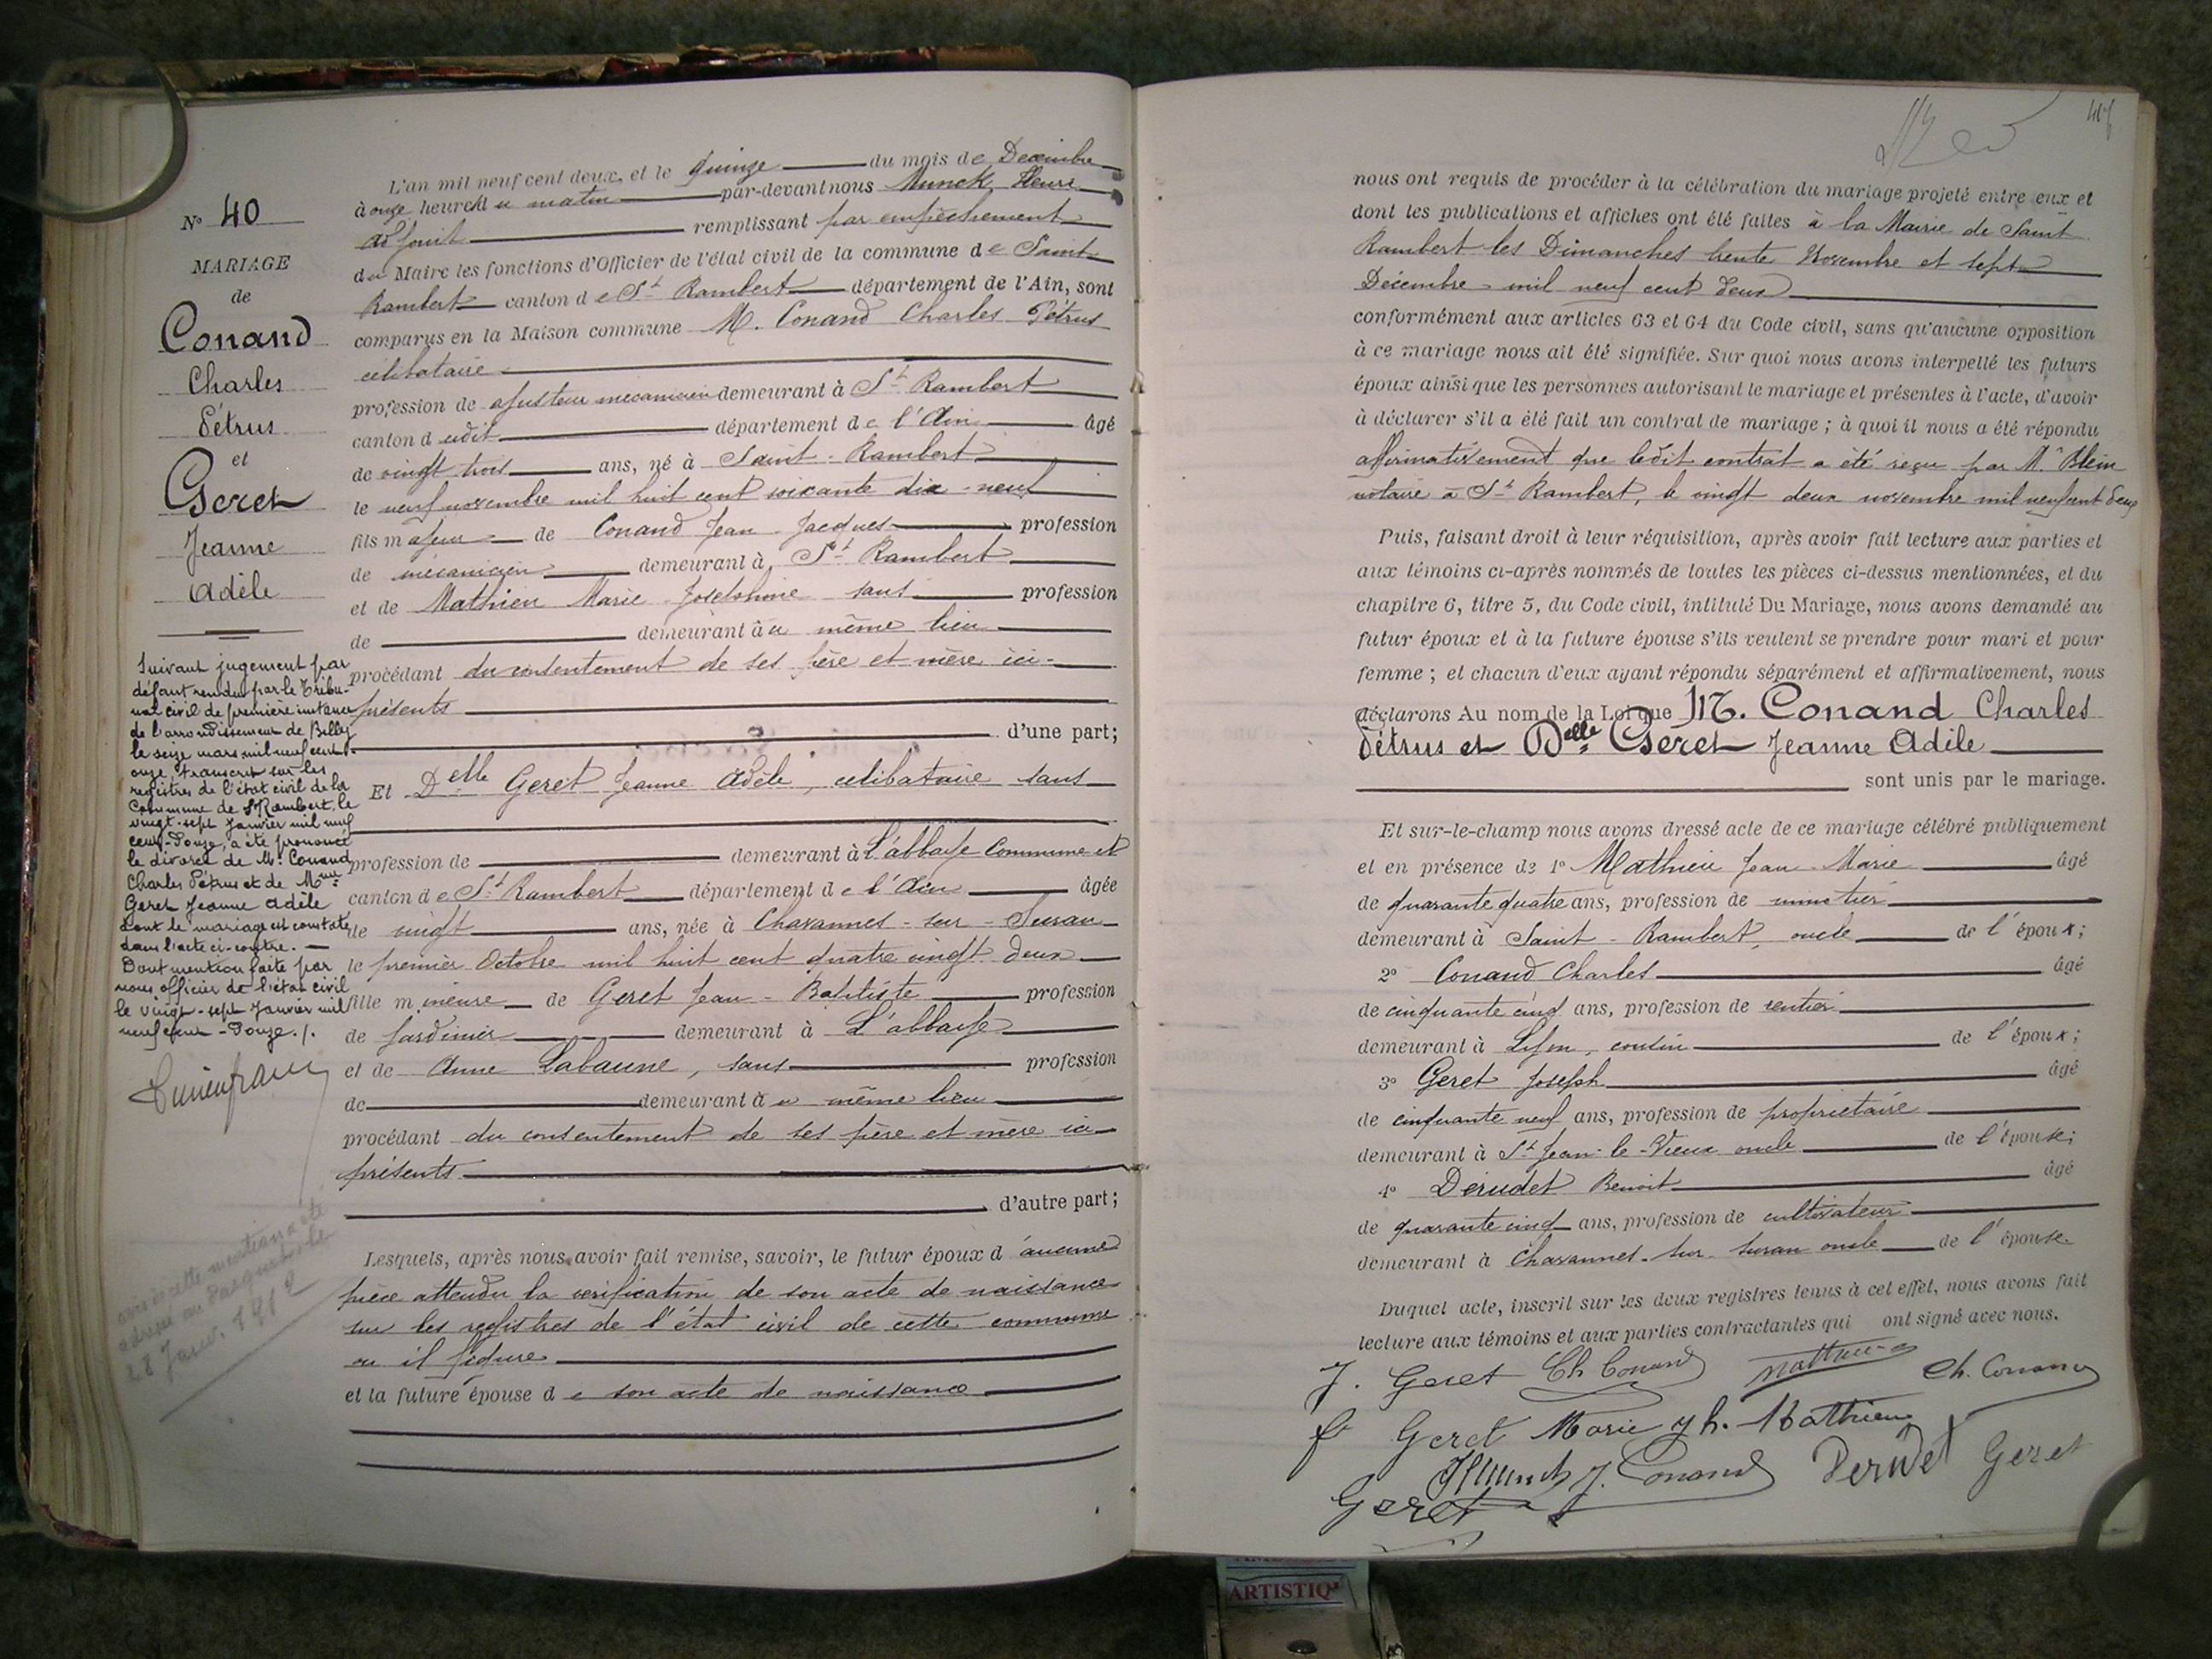 N° 40
MARIAGE
de
Conand
Charles
Pétrus
et
Geret
Jeanne
Adèle
Suivant jugement par
défaut rendu par le Tribu-
nal civil de première instance
de l'arrondissement de Belley
le seize mars mil neuf cent
onze, transcrit sur les
registres de l'état civil de la
Commune de St Rambert, le
vingt-sept Janvier mil neuf
cent-douze, a été prononcé
le divorce de Mr Conand
Charles Pétrus et de Mme
Geret Jeanne Adèle
dont le mariage est constaté
dans l'acte ci-contre. —
Dont mention faite par
nous officier de l'état civil
le vingt-sept Janvier mil
neuf cent-douze ./.
avis de cette mention a été
adressé au Parquet le
28 Janv. 1912
L'an mil neuf cent deux, et le quinze du mois de Décembre
à onze heures du matin par-devant nous Munck Henri
adjoint remplissant par empêchement
du Maire les fonctions d'Officier de l'état civil de la commune de Saint
Rambert canton de St Rambert département de l'Ain, sont
comparus en la Maison commune M. Conand Charles Pétrus
célibataire
profession de ajusteur mécanicien demeurant à St Rambert
canton dudit département de l'Ain âgé
de vingt trois ans, né à Saint-Rambert
le neuf novembre mil huit cent soixante dix-neuf
fils majeur de Conand Jean-Jacques profession
de mécanicien demeurant à St Rambert
et de Mathieu Marie Joséphine sans profession
de demeurant au même lieu
procédant du consentement de ses père et mère ici-
présents
d'une part;
Et Delle Geret Jeanne Adèle, célibataire sans
profession de demeurant à L'abbaye Commune et
canton de St Rambert département de l'Ain âgée
de vingt ans, née à Chavannes-sur-Suran
le premier Octobre mil huit cent quatre vingt deux
fille mineure de Geret Jean-Baptiste profession
de jardinier demeurant à L'abbaye
et de Anne Labaune, sans profession
de demeurant au même lieu
procédant du consentement de ses père et mère ici
présents
d'autre part;
Lesquels, après nous avoir fait remise, savoir, le futur époux d'aucune
pièce attendu la vérification de son acte de naissance
sur les registres de l'état civil de cette commune
ou il figure
et la future épouse de son acte de naissance
nous ont requis de procéder à la célébration du mariage projeté entre eux et
dont les publications et affiches ont été faites à la Mairie de Saint
Rambert les Dimanches trente Novembre et sept
Décembre mil neuf cent deux
conformément aux articles 63 et 64 du Code civil, sans qu'aucune opposition
à ce mariage nous ait été signifiée. Sur quoi nous avons interpellé les futurs
époux ainsi que les personnes autorisant le mariage et présentes à l'acte, d'avoir
à déclarer s'il a été fait un contrat de mariage; à quoi il nous a été répondu
affirmativement que ledit contrat a été reçu par Me Blein
notaire à St Rambert, le vingt deux novembre mil neuf cent deux
Puis, faisant droit à leur réquisition, après avoir fait lecture aux parties et
aux témoins ci-après nommés de toutes les pièces ci-dessus mentionnées, et du
chapitre 6, titre 5, du Code civil, intitulé Du Mariage, nous avons demandé au
futur époux et à la future épouse s'ils veulent se prendre pour mari et pour
femme; et chacun d'eux ayant répondu séparément et affirmativement, nous
déclarons Au nom de la Loi que M. Conand Charles
Pétrus et Delle Geret Jeanne Adèle
sont unis par le mariage.
Et sur-le-champ nous avons dressé acte de ce mariage célébré publiquement
et en présence de 1° Mathieu Jean-Marie âgé
de quarante quatre ans, profession de minotier
demeurant à Saint-Rambert, oncle de l'époux;
2° Conand Charles âgé
de cinquante cinq ans, profession de rentier
demeurant à Lyon, cousin de l'époux;
3° Geret Joseph âgé
de cinquante neuf ans, profession de propriétaire
demeurant à St Jean-le-Vieux oncle de l'épouse;
4° Derudet Benoit âgé
de quarante cinq ans, profession de cultivateur
demeurant à Chavannes-sur-Suran oncle de l'épouse.
Duquel acte, inscrit sur les deux registres tenus à cet effet, nous avons fait
lecture aux témoins et aux parties contractantes qui ont signé avec nous.
J. Geret Ch Conand Mathieu Ch. Conand
Geret Marie Jh. Mathieu
HMunck J. Conand Derudet Geret
Geret
ARTISTIQ